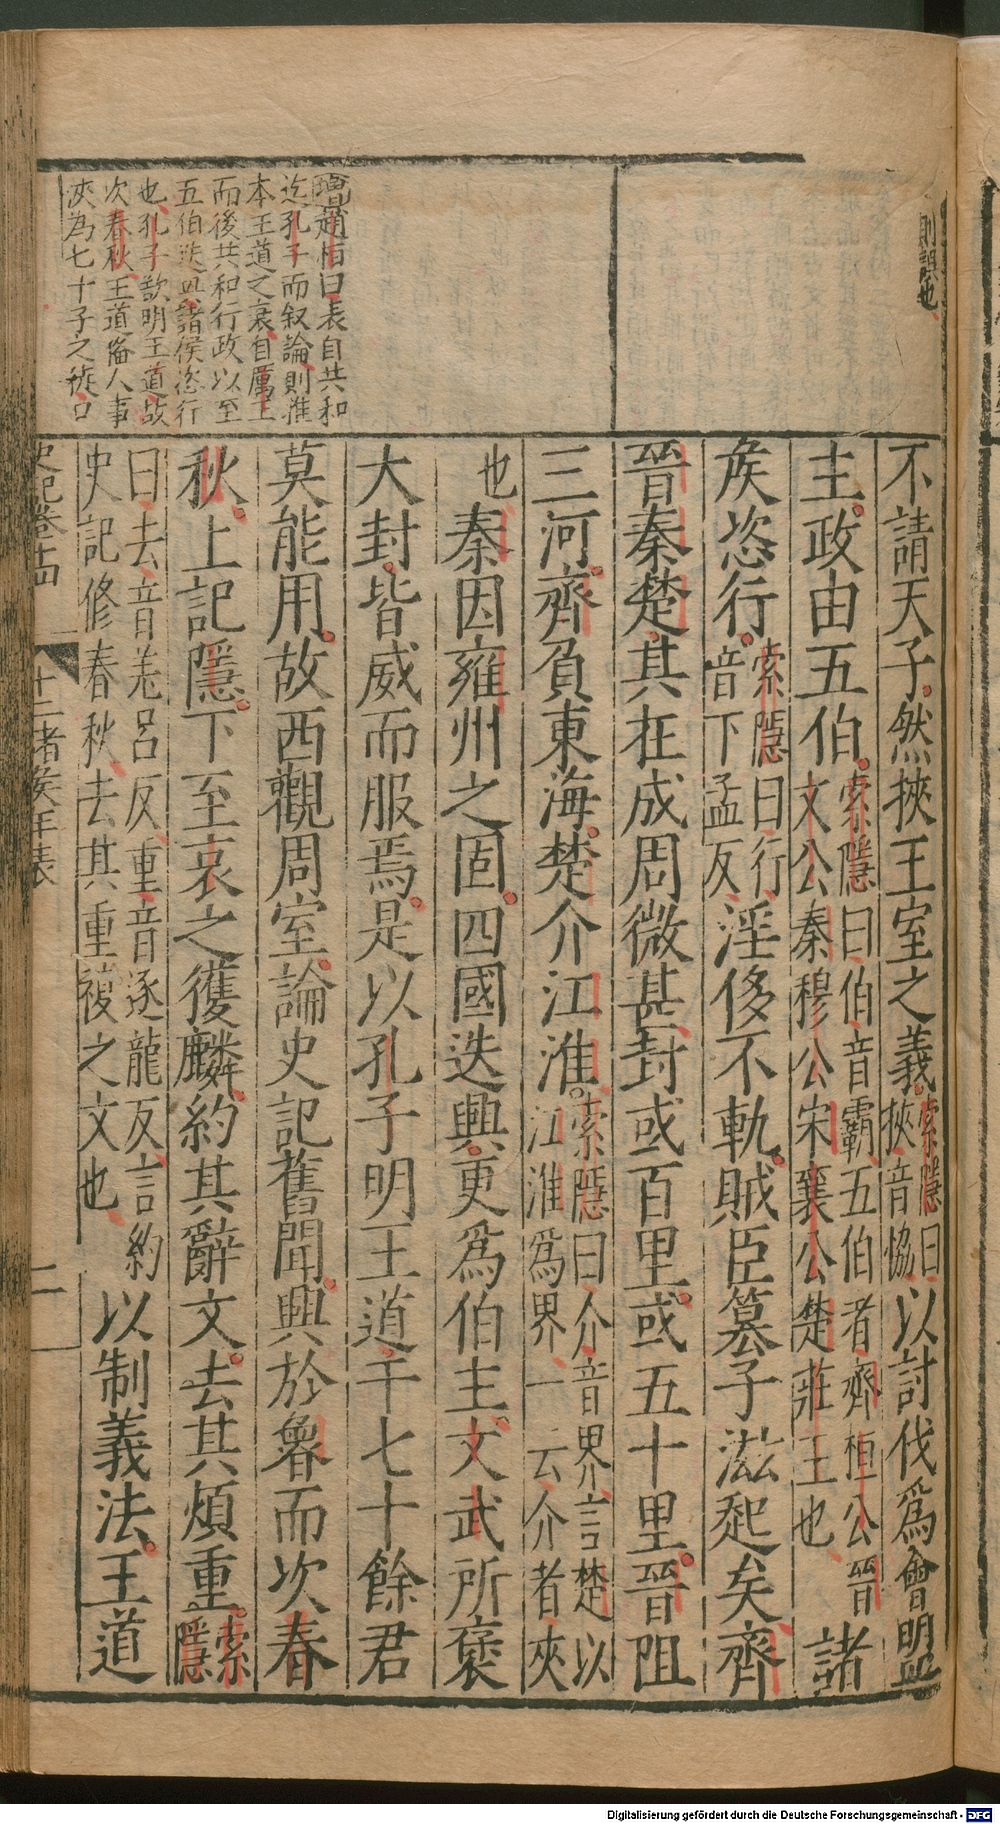 則誤也
增趙恒曰表自共和
迄孔子而叙論則推
本王道之衰自厲王
而後共和行政以至
五伯迭興諸侯恣行
也孔子欲明王道故
次春秋王道僃人事
浹為七十子之徒口
不請天子然挾王室之義索隱曰挾音協以討伐爲會盟
主政由五伯索隱曰伯音霸五伯者齊桓公晉文公秦穆公宋襄公楚莊王也諸
矦恣行索隱曰行音下孟反淫侈不軌賊臣簒子滋起矣齊
晉秦楚其在成周微甚封或百里或五十里晉阻
三河齊負東海楚介江淮索隱曰介音界言楚以江淮爲界一云介者夾
也秦因雍州之固四國迭興更爲伯主文武所褒
大封皆威而服焉是以孔子明王道干七十餘君
莫能用故西觀周室論史記舊聞興於魯而次春
秋上記隱下至哀之獲麟約其辭文去其煩重索隱
曰去音羌呂反重音逐龍反言約史記修春秋去其重複之文也以制義法王道
史記卷十四 十二諸矦年表 二
Digitalisierung gefördert durch die Deutsche Forschungsgemeinschaft - DFG